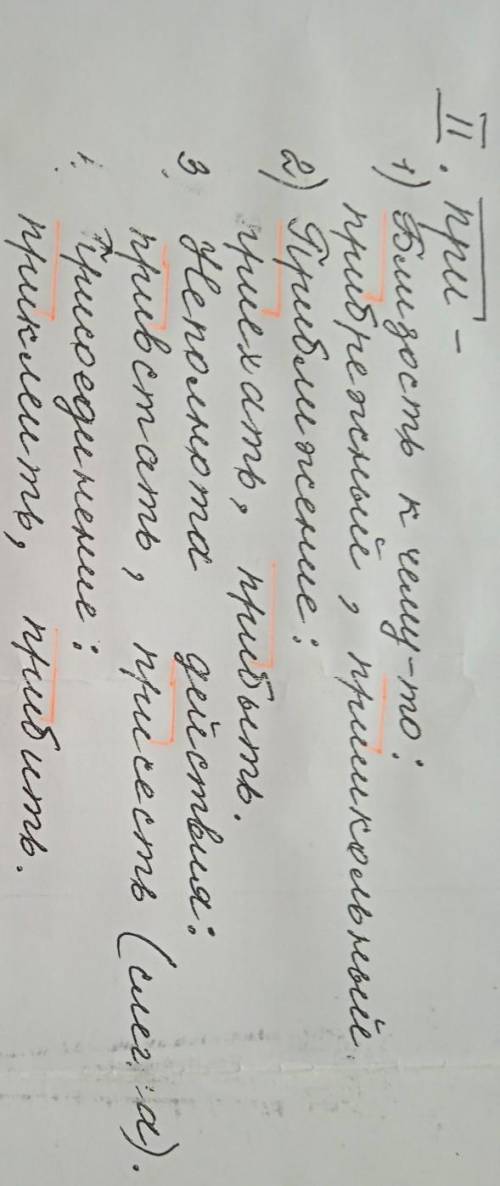 II. при-
1) Близость к чему-то:
прибрежный, пришкольный.
2) Приближение:
приехать, прибыть.
3. Неполнота действия:
привстать, присесть (слегка).
Присоединение:
приклеить, прибить.